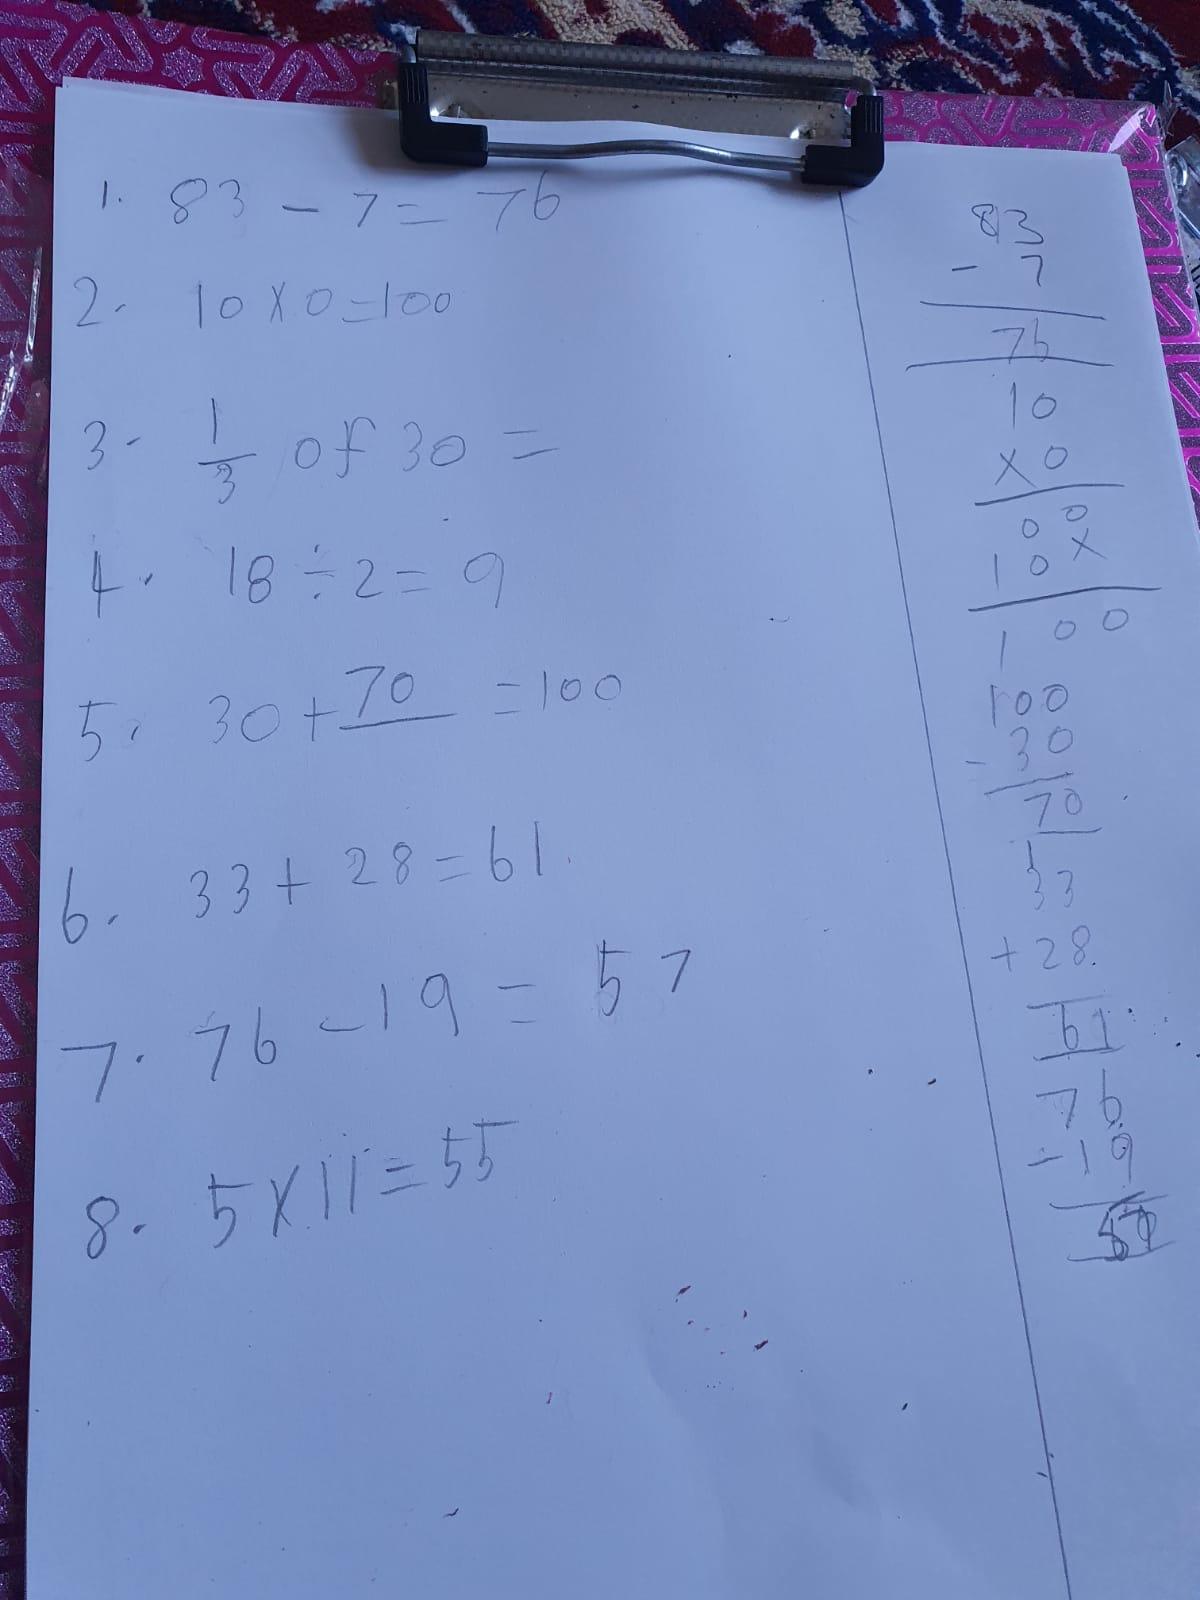 1. 83 - 7 = 76
2. 10 x 0 = 100
3. 1/3 of 30 =
4. 18 ÷ 2 = 9
5. 30 + 70 = 100
6. 33 + 28 = 61
7. 76 - 19 = 57
8. 5 x 11 = 55
83
- 7
76
10
x 0
0 0
1 0 x
1 0 0
100
- 30
70
1
33
+ 28
61
76
- 19
57